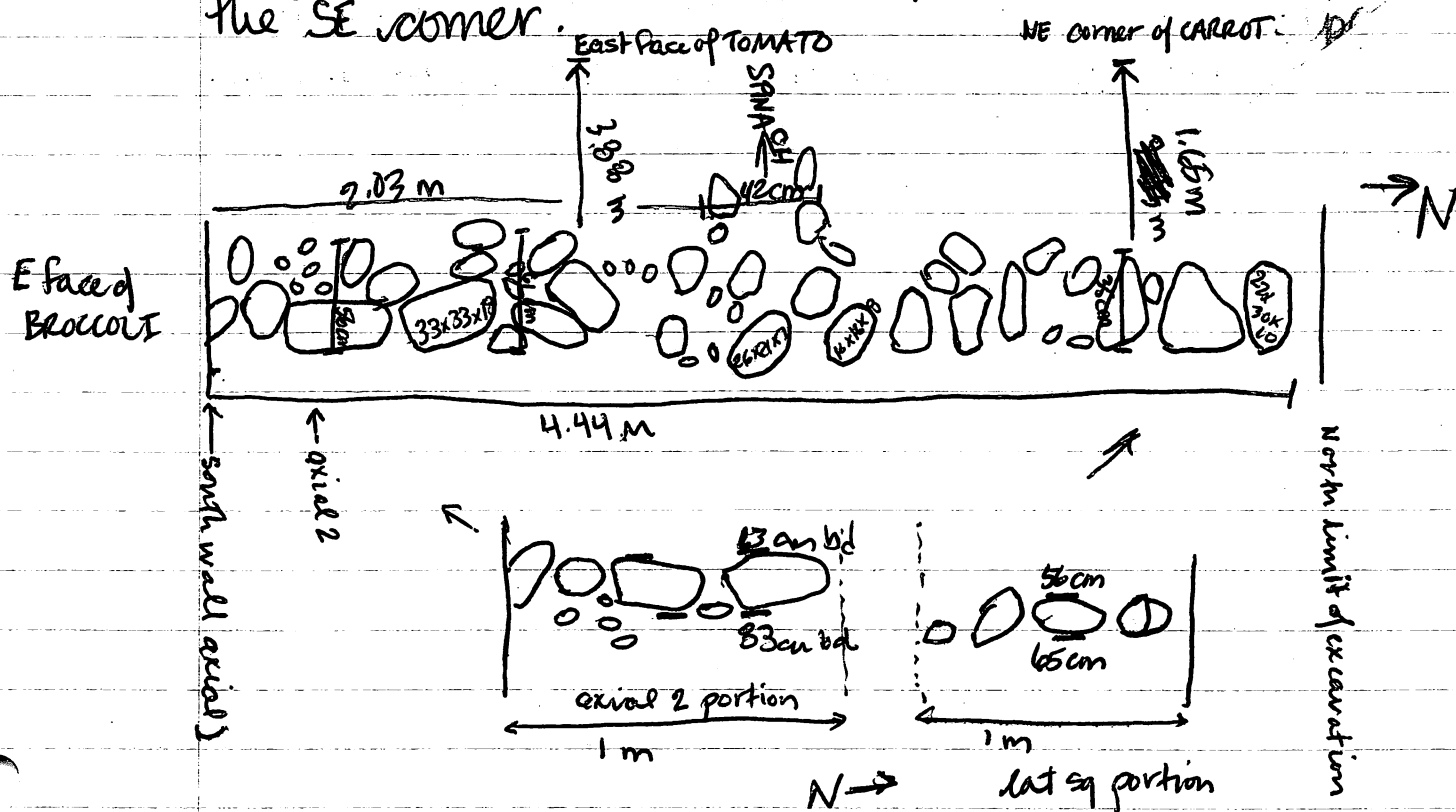 the SE corner.
East face of TOMATO
NE corner of CARROT.
SANA
OH
3.88 m
1.65m
2.03 m
42cm
N
E face of
BROCCOLI
56cm
33x33x18
35cm
4.44 M
axial 2
South wall axial)
North limit of excavation
63 cm bd
83cm bd
axial 2 portion
1 m
56cm
65cm
1 m
lat sq portion
N